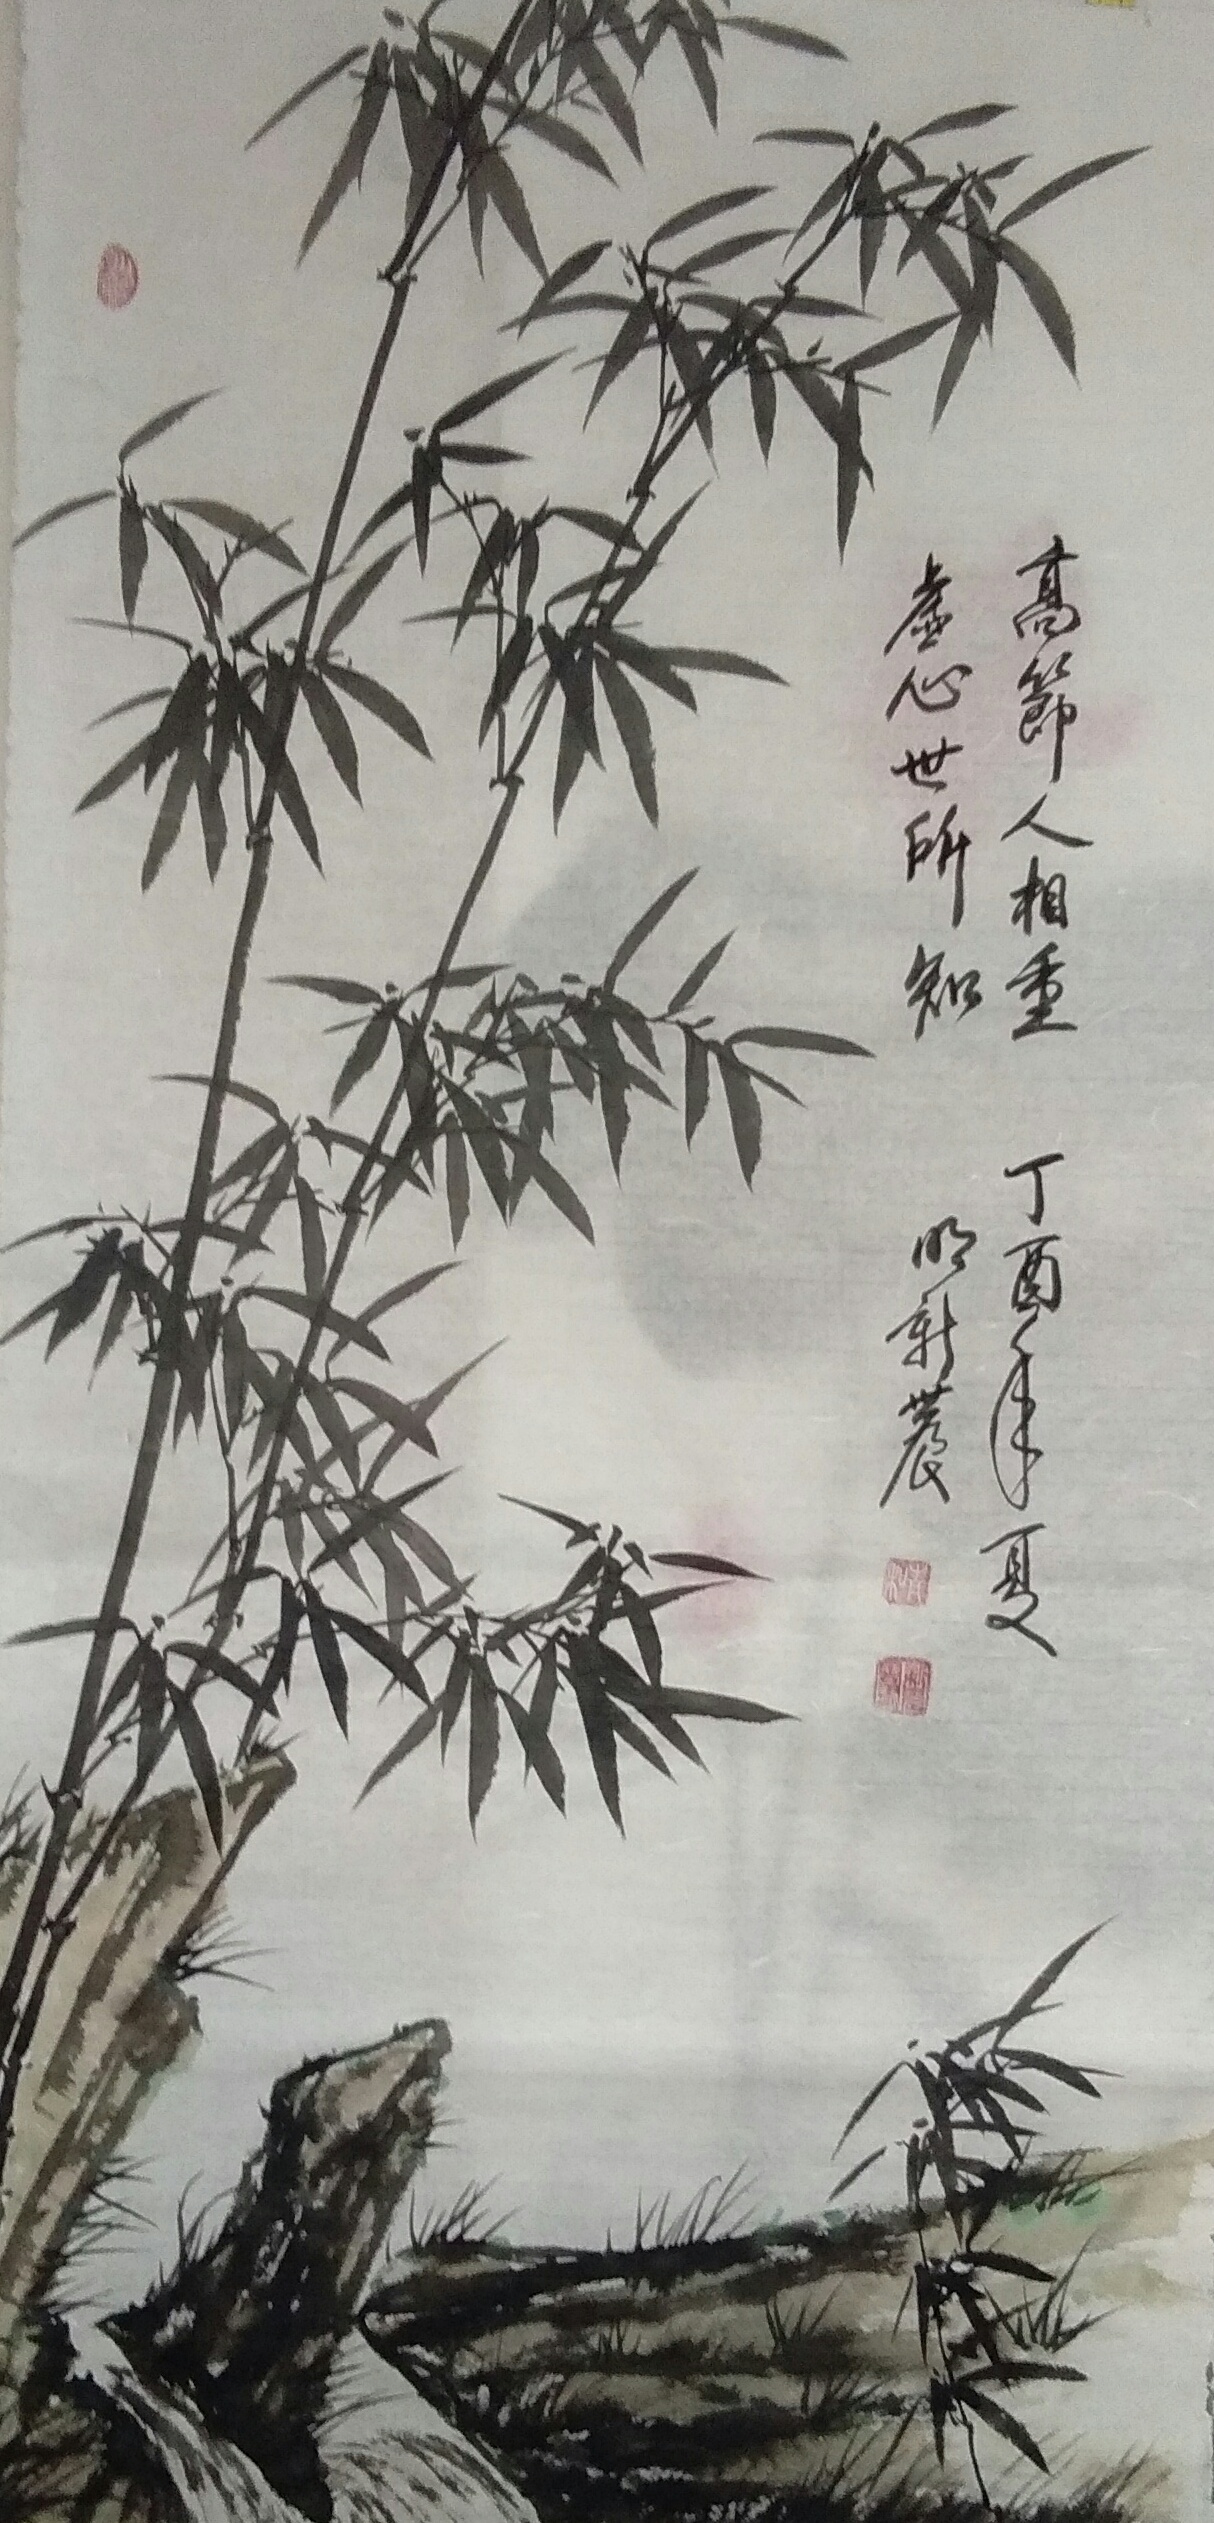 高節人相重 丁酉年夏
虚心世所知 明新農